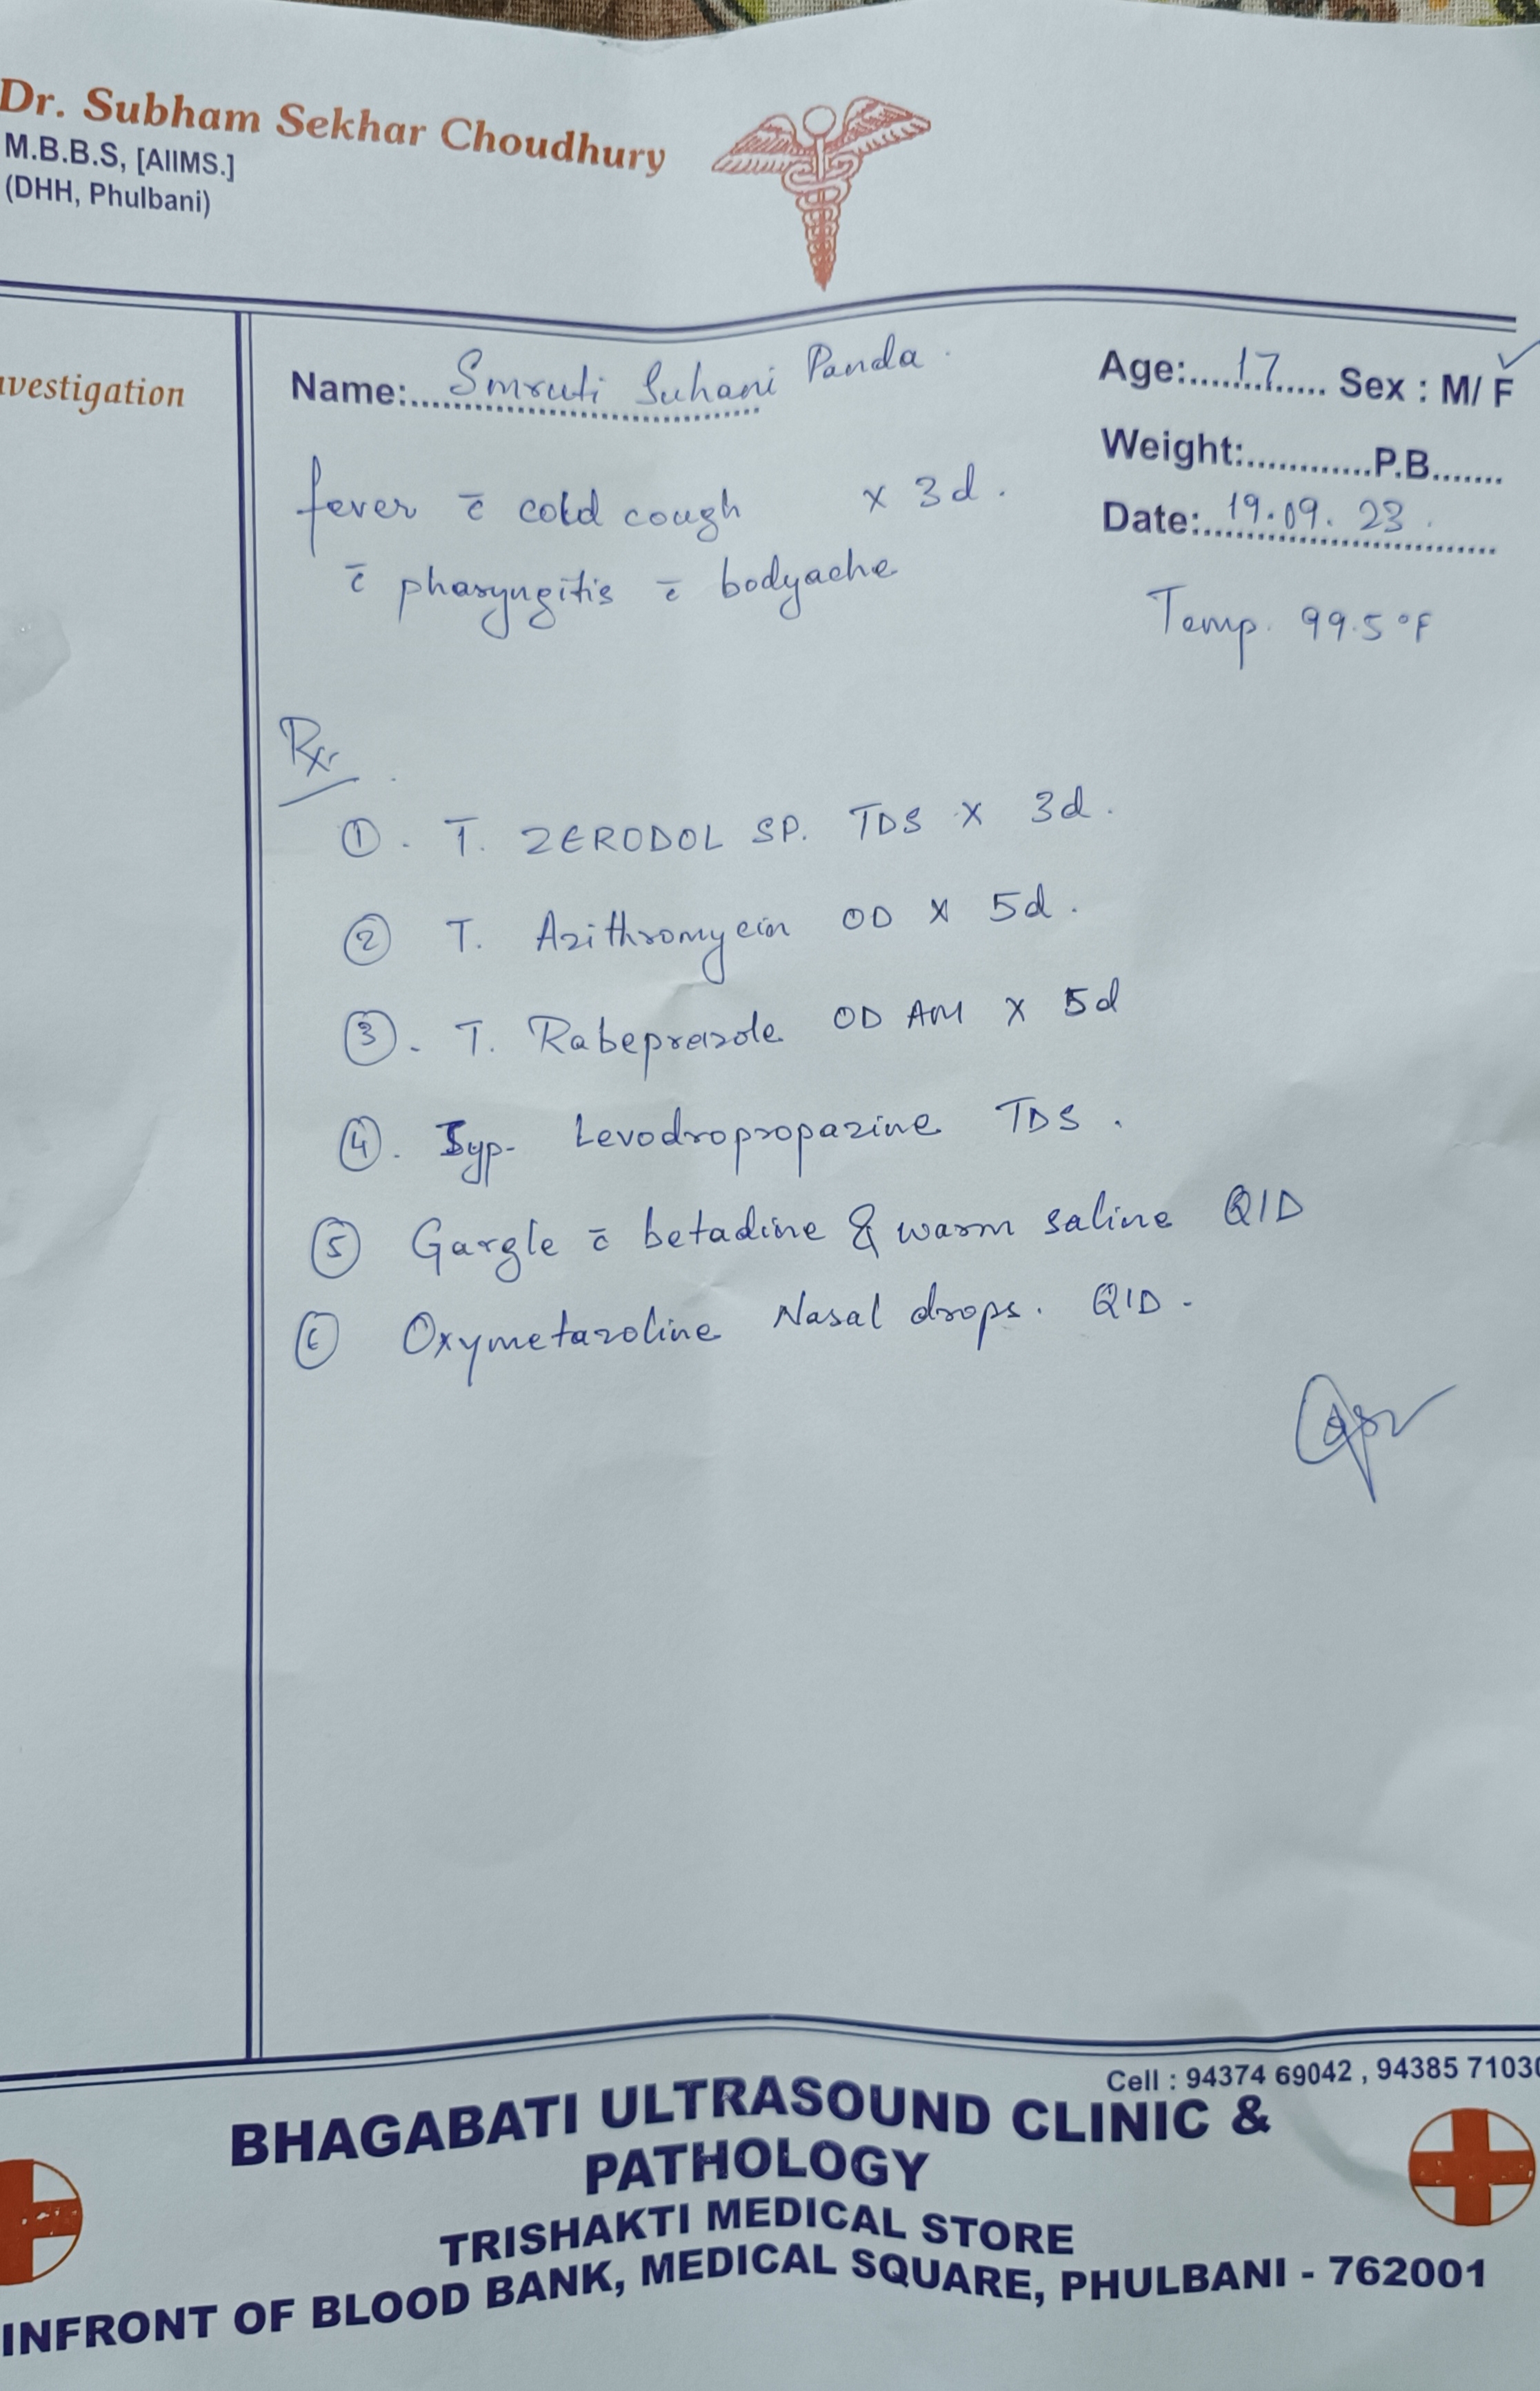 Dr. Subham Sekhar Choudhury
M.B.B.S, [AIIMS.]
(DHH, Phulbani)
nvestigation
Name:..... Smruti Suhani Panda
Age:.....17..... Sex : M/ F ✓
Weight:............P.B.......
Date:..19.09.23.
fever c̄ cold cough x 3d.
c̄ pharyngitis c̄ bodyache
Temp. 99.5°F
Rx
① . T. ZERODOL SP. TDS x 3d.
② T. Azithromycin OD x 5d.
③ . T. Rabeprazole OD AM x 5d
④ . Syp. Levodropropazine TDS .
⑤ Gargle c̄ betadine & warm saline QID
⑥ Oxymetazoline Nasal drops. QID -
Cell : 94374 69042 , 94385 71030
BHAGABATI ULTRASOUND CLINIC &
PATHOLOGY
TRISHAKTI MEDICAL STORE
INFRONT OF BLOOD BANK, MEDICAL SQUARE, PHULBANI - 762001